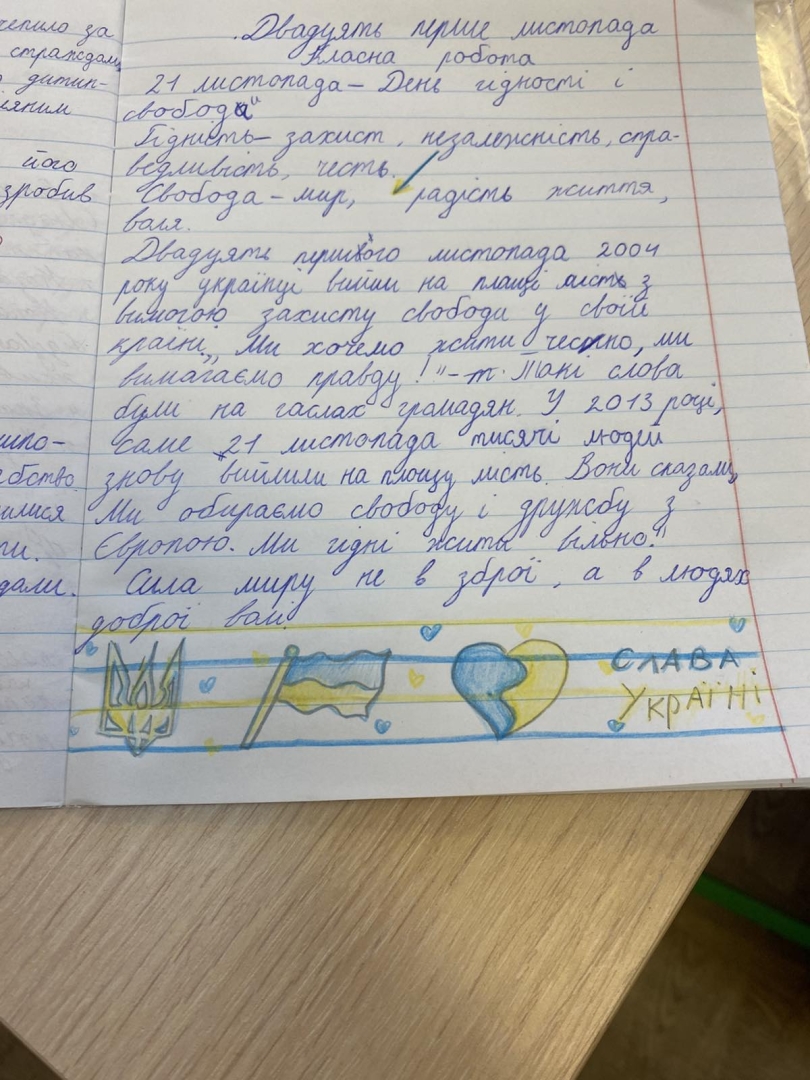 чепило за
страждал
дитин-
іяним
його
зробив
Двадцять перше листопада
Класна робота
21 листопада – День гідності і
свободи"
Гідність – захист, незалежність, спра-
ведливість, честь.
Свобода – мир, радість життя,
воля.
Двадцять першого листопада 2004
року українці вийши на площі міст з
вимогою захисту свободи у своїй
країні „Ми хочемо жити чесно, ми
вимагаємо правду!" – Такі слова
були на гаслах громадян. У 2013 році,
саме 21 листопада тисячі людей
знову вийшли на площу міст. Вони сказали,
Ми обираємо свободу і дружбу з
Європою. Ми гідні жити вільно!"
Сила миру не в зброї, а в людях
доброї волі
илися
дали.
СЛАВА
УКРАЇНІ